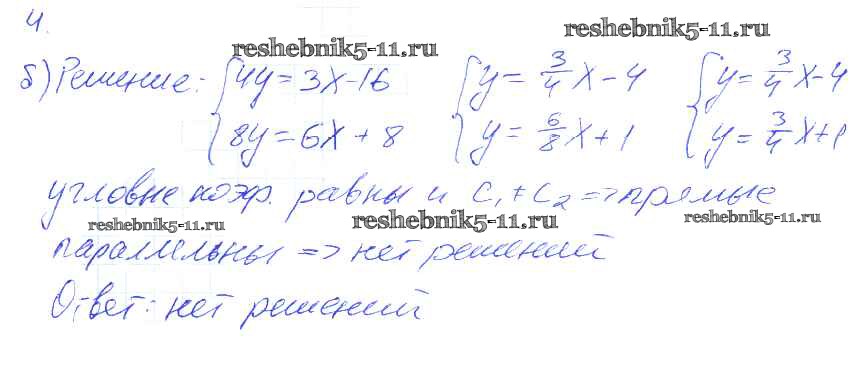 4.
reshebnik5-11.ru
reshebnik5-11.ru
б) Решение: { 4y = 3x - 16 { y = 3/4 x - 4 { y = 3/4 x - 4
8y = 6x + 8 y = 6/8 x + 1 y = 3/4 x + 1
угловые коэф. равны и C₁ ≠ C₂ => прямые
reshebnik5-11.ru reshebnik5-11.ru reshebnik5-11.ru
параллельны => нет решений
Ответ: нет решений